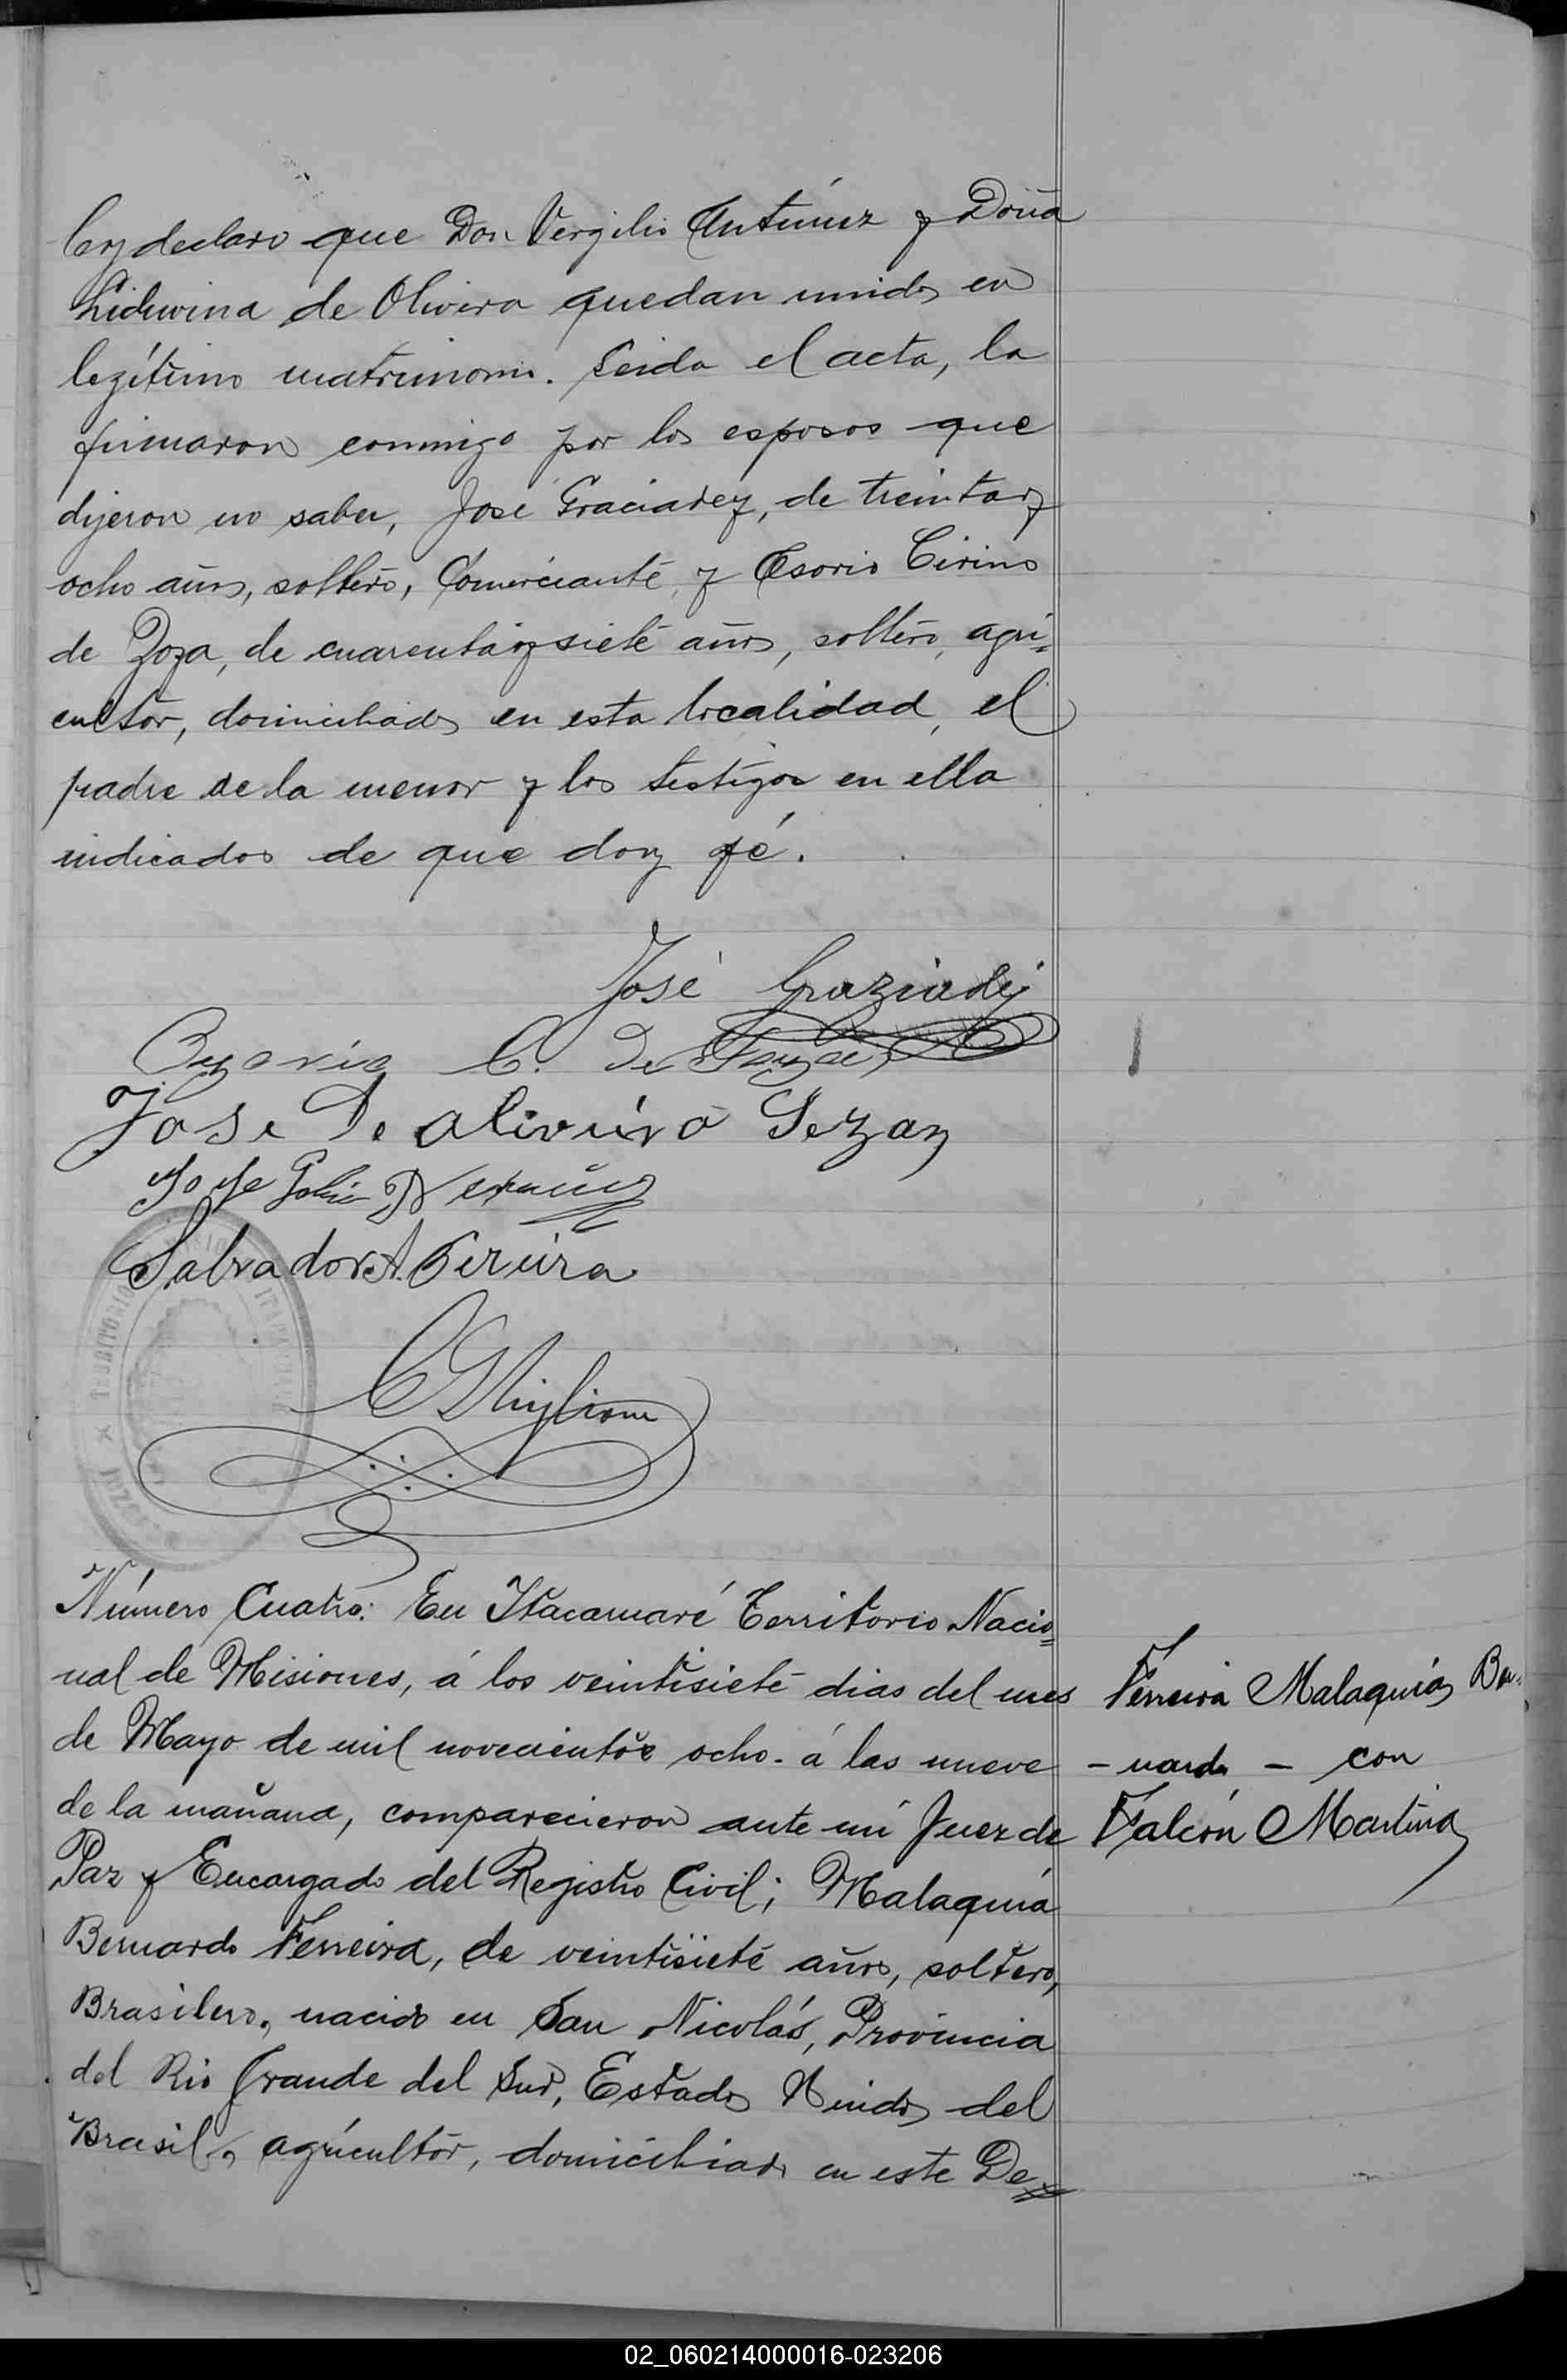 ley declaro que Don Vergilio Antúnez y Doña
Liduvina de Olivera quedan unidos en
legítimo matrimonio. Leida el acta, la
firmaron conmigo por los esposos que
dijeron no saber, José Graciadey, de treinta y
ocho años, soltero, Comerciante, y Osorio Cirino
de Zoza, de cuarenta y siete años, soltero, agri=
cultor, domiciliados en esta localidad, el
padre de la menor y los testigos en ella
indicados de que doy fé.
José Graziadej
Ozorio C. de Souza
Jose De Oliveira
Jose
Salvador A. Pereira
TERRITORIO
Número Cuatro: En Itacaruaré Territorio Nacio=
nal de Misiones, á los veintisiete dias del mes
Ferreira Malaquías Ber=
de Mayo de mil novecientos ocho- á las nueve
- nardo - con
de la mañana, comparecieron ante mi Juez de
Falcón Martina
Paz y Encargado del Registro Civil; Malaquía
Bernardo Ferreira, de veintisiete años, soltero,
Brasilero, nacido en San Nicolás, Provincia
del Rio Grande del Sud, Estados Unidos del
Brasil, agricultor, domiciliado en este De=
02_060214000016-023206